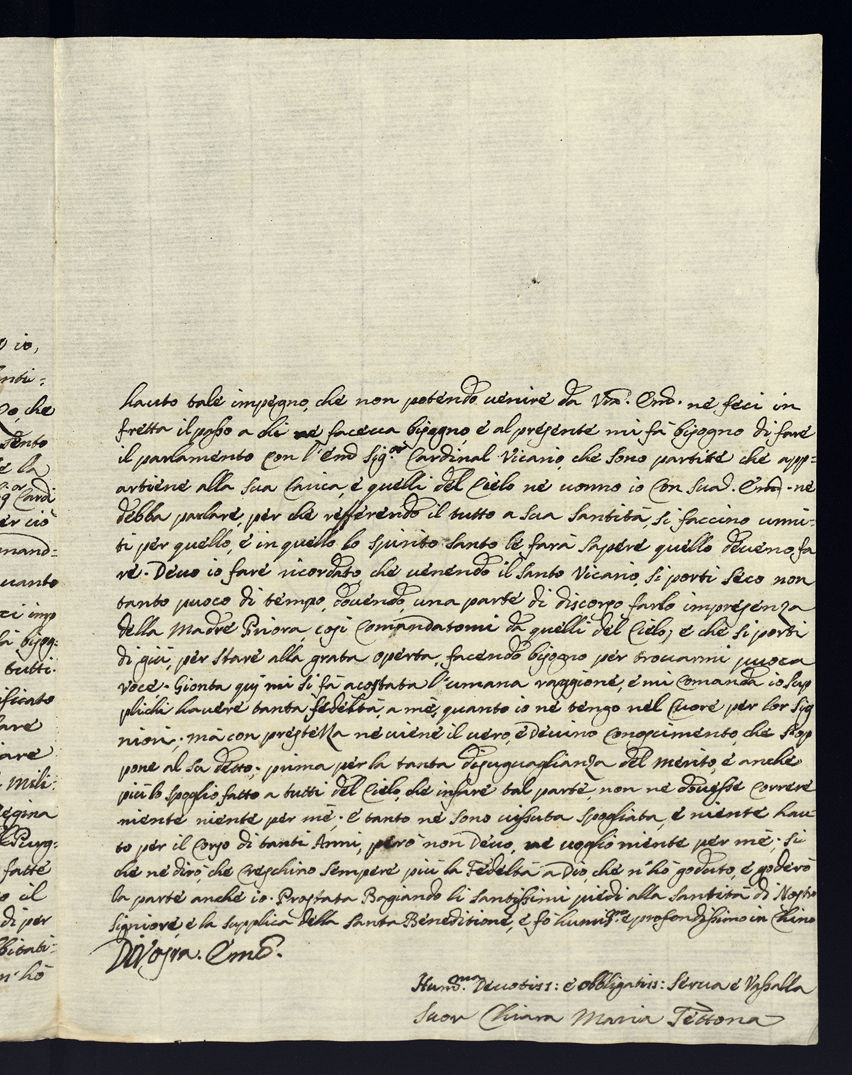 o io,
che
sento
e la
er ciò
mand=
uanto
ci imp
tutti.
ificato
lare
iare
Mili:
Regina
fatte
o il
di per
n'hò
hauto tale impegno, che non potendo uenire da Vra. Emã. ne feci in
fretta il passo a chi ne faceua bisogno, é al presente mi fà bisogno di fare
il parlamento con l'Emõ Sig.or Cardinal Vicario, che sono partite che app=
artiene alla sua Carica, é quelli del Cielo ne uonno io con Sua. Emã. ne
debba parlare, per che refferendo il tutto a sua Santità, si faccino uni=
ti per quello, é in quello lo spirito santo le farà sapere quello deueno, fa
re. Deuo io fare ricordato, che uenendo il Santo Vicario, si porti seco non
tanto puoco di tempo, douendo, una parte di discorso farlo impresenza
della Madre Priora così Comandatomi da quelli del Cielo; e che si porti
di giù, per stare alla grata operta, facendo bisogno per trouarmi puoca
voce. Gionta qui mi si fà acostata l'umana raggione, é mi Comanda io sup
plichi hauere tanta fedeltà, a me, quanto io ne tengo nel Cuore per lor Sig
niori, mà con prestezza ne uiene il uero, é Deuino Conoscimento, che s'op
pone al su detto. prima per la tanta disuguaglianza del merito, é anche
più lo spoglio, fatto a tutti del Cielo, che infare tal parte non ne douesse correre
niente niente per mé. é tanto né sono uissuta spogliata, é niente hau
to per il Corso di tanti Anni, però non Deuo, ne uoglio niente per mé. Si
che ne dirò, che creschino sempere più la Fedeltà a Dio, che n'hò goduto, é goderò
la parte anche io. Prostata Bagiando li Santissimi piedi alla Santità di Nostro
Signiore, é la supplica della Santa Beneditione, é fò humis.ma é profondissimo in Chino
Di Vostra. Emã.
Hum.ma Deuotiss: é obbligatiss: Serua é Vassalla
Suor Chiara Maria Tettona